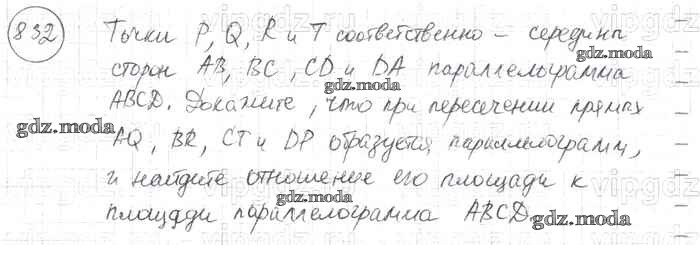 832 Точки P, Q, R и T соответственно – середины
сторон AB, BC, CD и DA параллелограмма
ABCD. Докажите, что при пересечении прямых
AQ, BR, CT и DP образуется параллелограмм,
и найдите отношение его площади к
площади параллелограмма ABCD.
gdz.moda
gdz.moda
gdz.moda
gdz.moda
gdz.moda
gdz.moda
vipgdz